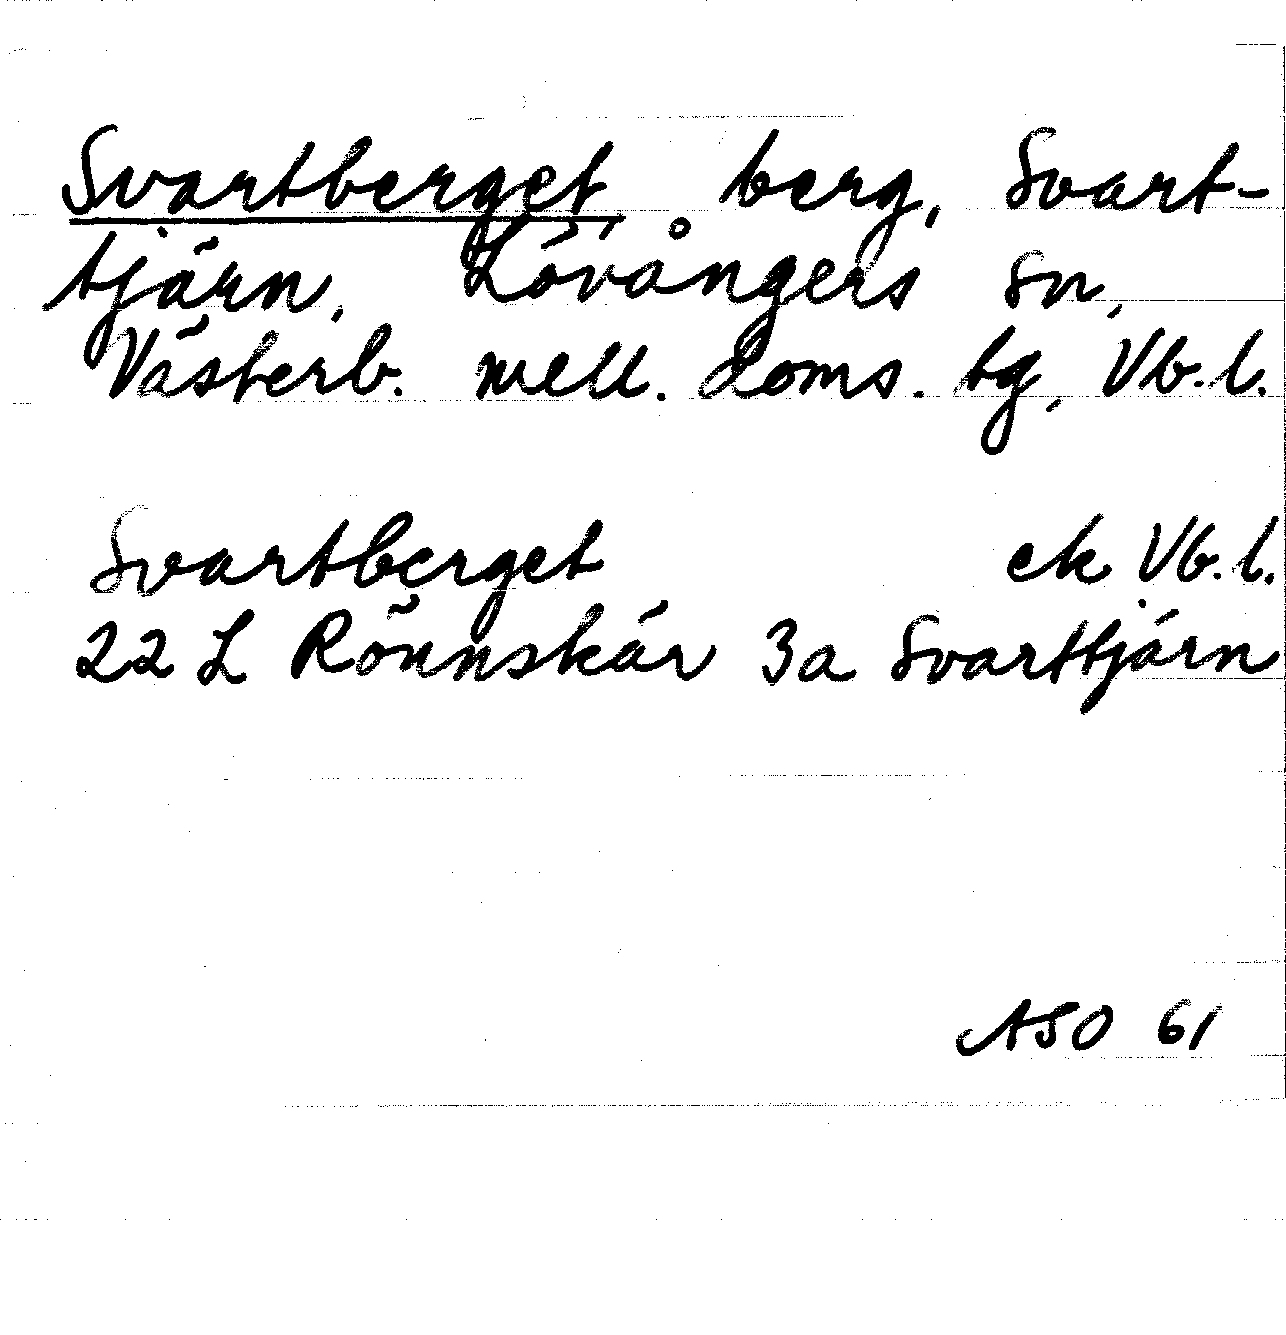 Svartberget, berg, Svart-
tjärn, Lövångers sn,
Västerb. mell. doms. tg, Vb.l.
Svartberget ek Vb.l.
22 L Rönnskär 3a Svarttjärn
ASO 61